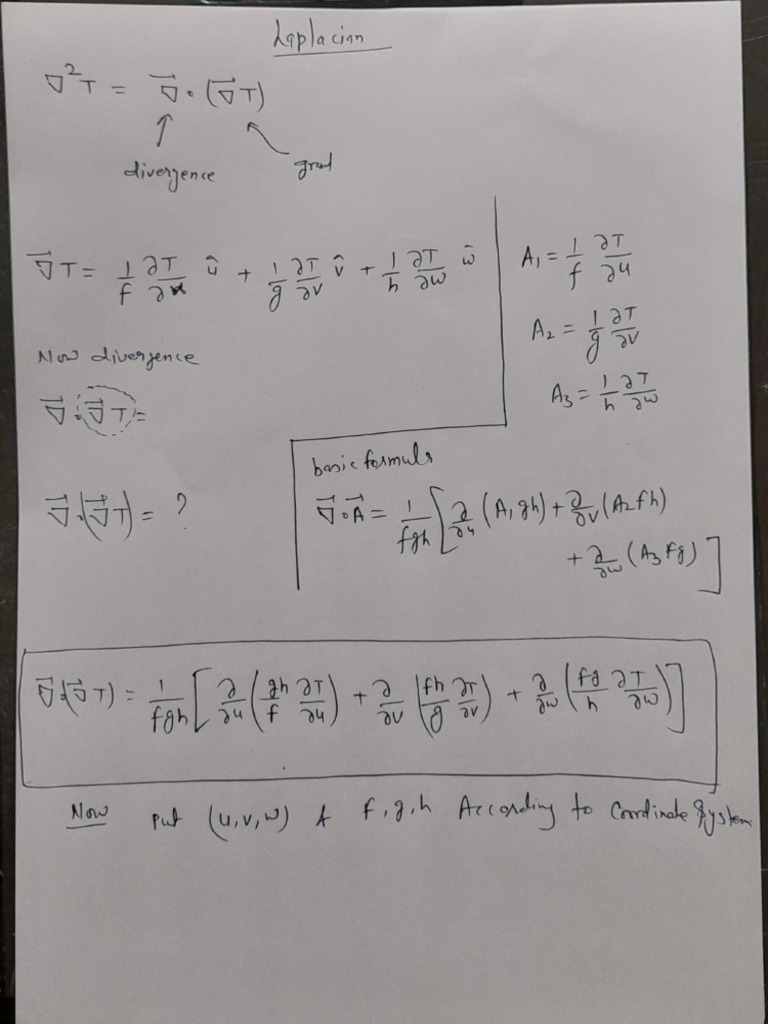 Laplacian
∇²T = ∇⃗ · (∇⃗T)
↑ ↖
divergence grad
∇⃗T = 1/f ∂T/∂u û + 1/g ∂T/∂v v̂ + 1/h ∂T/∂w ŵ
A₁ = 1/f ∂T/∂u
A₂ = 1/g ∂T/∂v
A₃ = 1/h ∂T/∂w
Now divergence
∇⃗·∇⃗T =
∇⃗·(∇⃗T) = ?
basic formula
∇⃗·A⃗ = 1/fgh [∂/∂u (A₁gh) + ∂/∂v (A₂fh)
+ ∂/∂w (A₃fg)]
∇⃗·(∇⃗T) = 1/fgh [∂/∂u (gh/f ∂T/∂u) + ∂/∂v (fh/g ∂T/∂v) + ∂/∂w (fg/h ∂T/∂w)]
Now put (u,v,w) & f,g,h According to Coordinate System